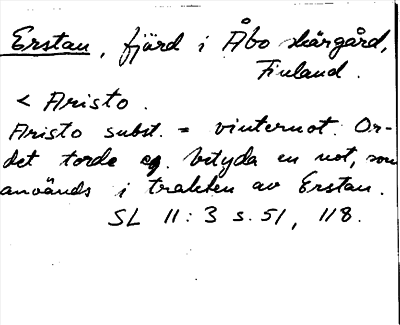 Erstan, fjärd i Åbo skärgård,
Finland.
< Aristo.
Aristo subst. = vinternot. Or-
det torde eg. betyda en not, som
används i trakten av Erstan.
SL 11:3 s. 51, 118.